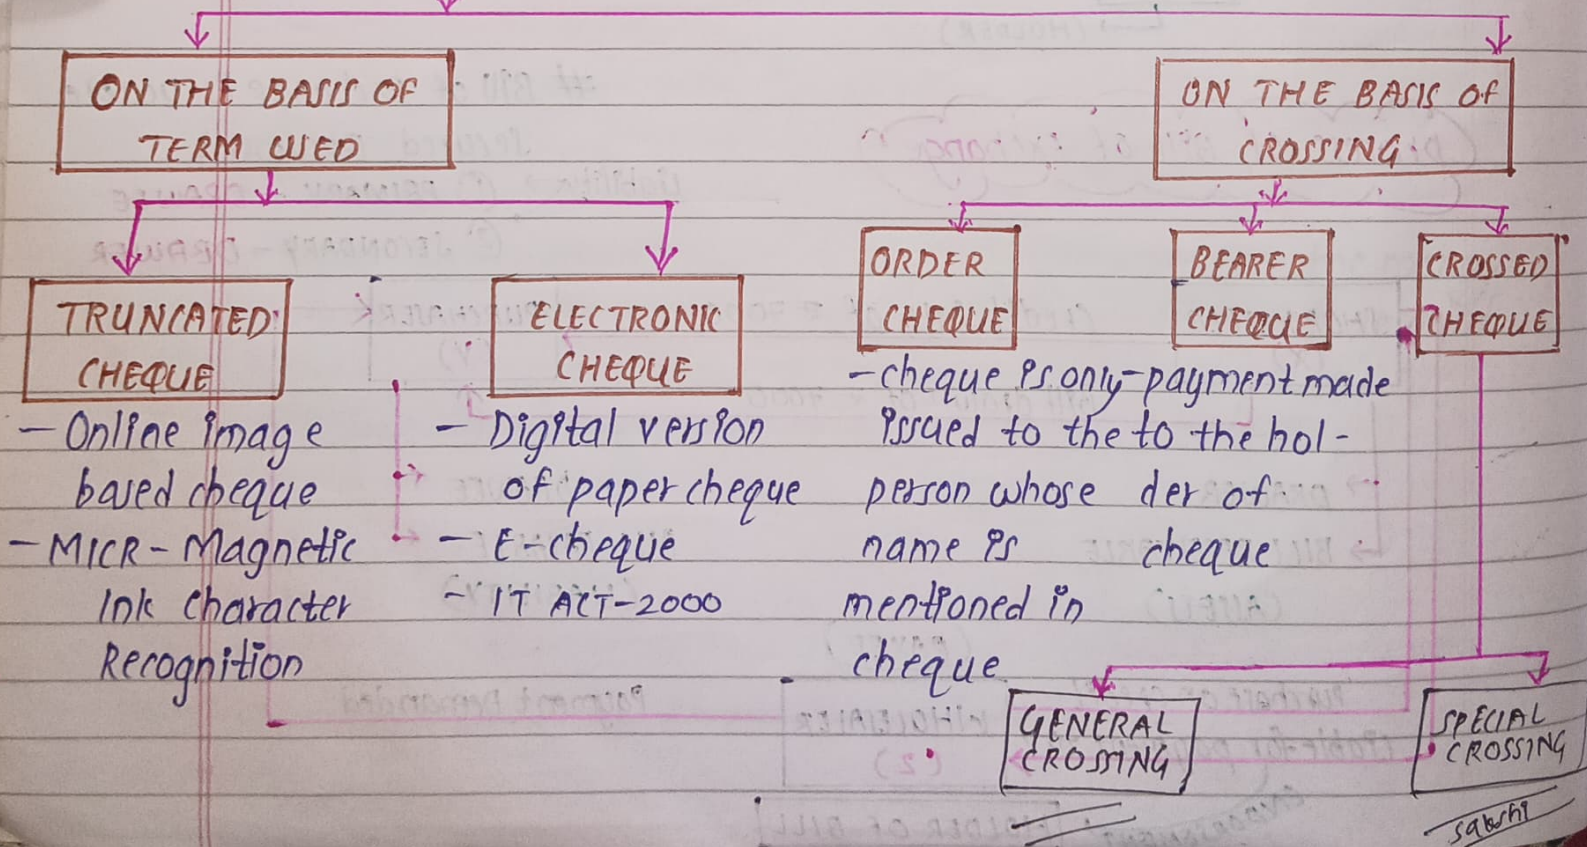 ON THE BASIS OF
TERM USED
ON THE BASIS OF
CROSSING
TRUNCATED
CHEQUE
- Online image
based cheque
- MICR - Magnetic
Ink Character
Recognition
ELECTRONIC
CHEQUE
- Digital version
of paper cheque
- E-cheque
- IT ACT-2000
ORDER
CHEQUE
- cheque is only
issued to the
person whose
name is
mentioned in
cheque
BEARER
CHEQUE
- payment made
to the hol-
der of
cheque
CROSSED
CHEQUE
GENERAL
CROSSING
SPECIAL
CROSSING
sakshi